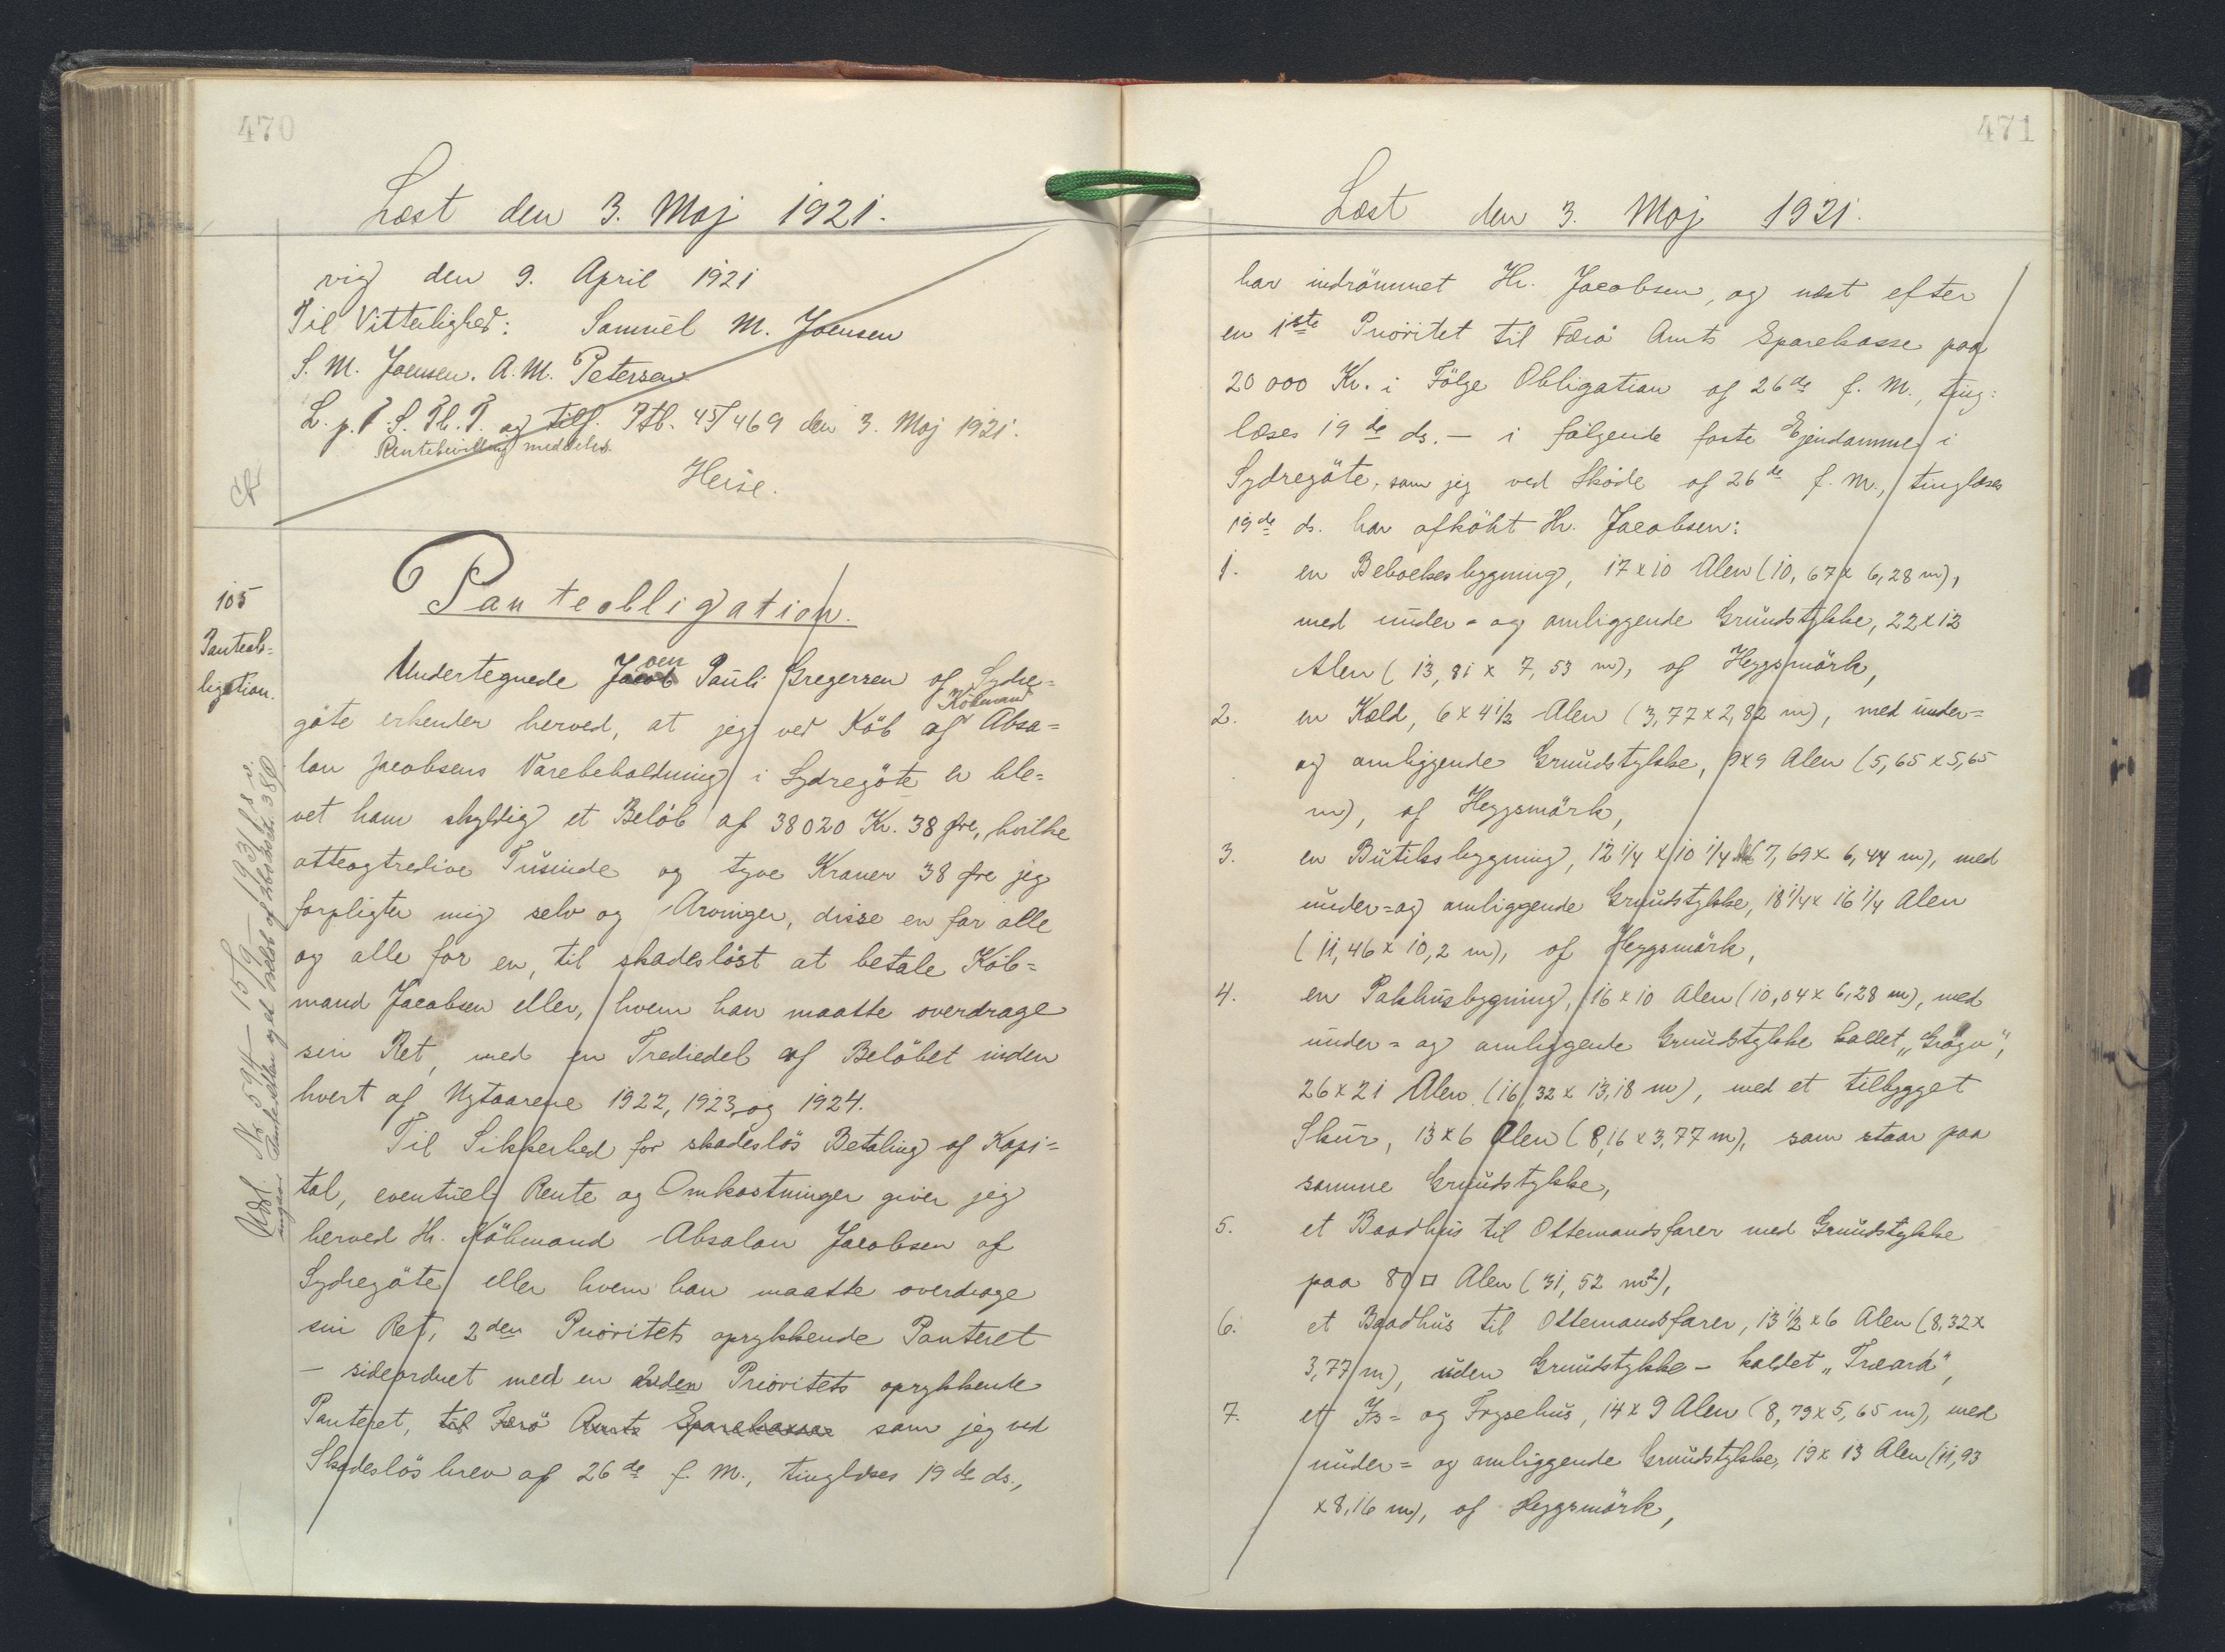 470
Læst den 3. Maj 1921.
vig den 9. April 1921
Til Vitterlighed: Samuel M. Joensen
S. M. Joensen. A. M. Petersen
L. p. T. S. Th. T. og tilf. Ptb. 45/469 den 3. Maj 1921.
Rentebevilling meddeles.
Heise.
105
Panteob=
ligation.
Panteobligation.
Undertegnede Joen Pauli Gregersen af Sydre=
göte erkender herved, at jeg ved Köb af Købmand Absa=
lon Jacobsens Varebeholdning i Sydregöte er ble=
vet ham skyldig et Belöb af 38020 Kr. 38 Øre, hvilke
otteogtredive Tusinde og tyve Kroner 38 Øre jeg
forpligter mig selv og Arvinger, disse en for alle
og alle for en, til skadeslöst at betale Köb=
mand Jacobsen eller, hvem han maatte overdrage
sin Ret, med en Trediedel af Belöbet inden
hvert af Nytaarene 1922, 1923 og 1924.
Til Sikkerhed for skadeslös Betaling af Kapi=
tal, eventuel Rente og Omkostninger giver jeg
herved Hr. Köbmand Absalon Jacobsen af
Sydregöte eller hvem han maatte overdrage
sin Ret, 2den Prioritets oprykkende Panteret
- sideordnet med en 2den Prioritets oprykkende
Panteret, til Færö Amts Sparekasse som jeg ved
Skadeslösbrev af 26de f. M., tinglæses 19de ds.,
Udsl. No 594 - 15/9 - 1931
471
Læst den 3. Maj 1921.
har indrömmet Hr. Jacobsen, og næst efter
en 1ste Prioritet til Færö Amts Sparekasse paa
20 000 Kr. i Fölge Obligation af 26de f. M., ting=
læses 19de ds. - i fölgende faste Ejendomme i
Sydregöte, som jeg ved Sköde af 26de f. M., tinglæses
19de ds. har afköbt Hr. Jacobsen:
1. en Beboelsesbygning, 17 x 10 Alen (10,67 x 6,28 m),
med under- og omliggende Grundstykke, 22 x 12
Alen (13,81 x 7,53 m), af Heygsmörk,
2. en Kæld, 6 x 4 1/2 Alen (3,77 x 2,82 m), med under=
og omliggende Grundstykke, 9 x 9 Alen (5,65 x 5,65
m), af Heygsmörk,
3. en Butiksbygning, 12 1/4 x 10 1/4 (7,69 x 6,44 m), med
under= og omliggende Grundstykke, 18 1/4 x 16 1/4 Alen
(11,46 x 10,2 m), af Heygsmörk,
4. en Pakhusbygning, 16 x 10 Alen (10,04 x 6,28 m), med
under= og omliggende Grundstykke kaldet
26 x 21 Alen (16,32 x 13,18 m), med et tilbygget
Skur, 13 x 6 Alen (8,16 x 3,77 m), som staar paa
samme Grundstykke,
5. et Baadhus til Ottemandsfarer med Grundstykke
paa 80 □ Alen (31,52 m2),
6. et Baadhus til Ottemandsfarer, 13 1/2 x 6 Alen (8,32 x
3,77 m), uden Grundstykke - kaldet
7. et Is= og Frysehus, 14 x 9 Alen (8,79 x 5,65 m), med
under= og omliggende Grundstykke, 19 x 13 Alen (11,93
x 8,16 m), af Heygsmörk,